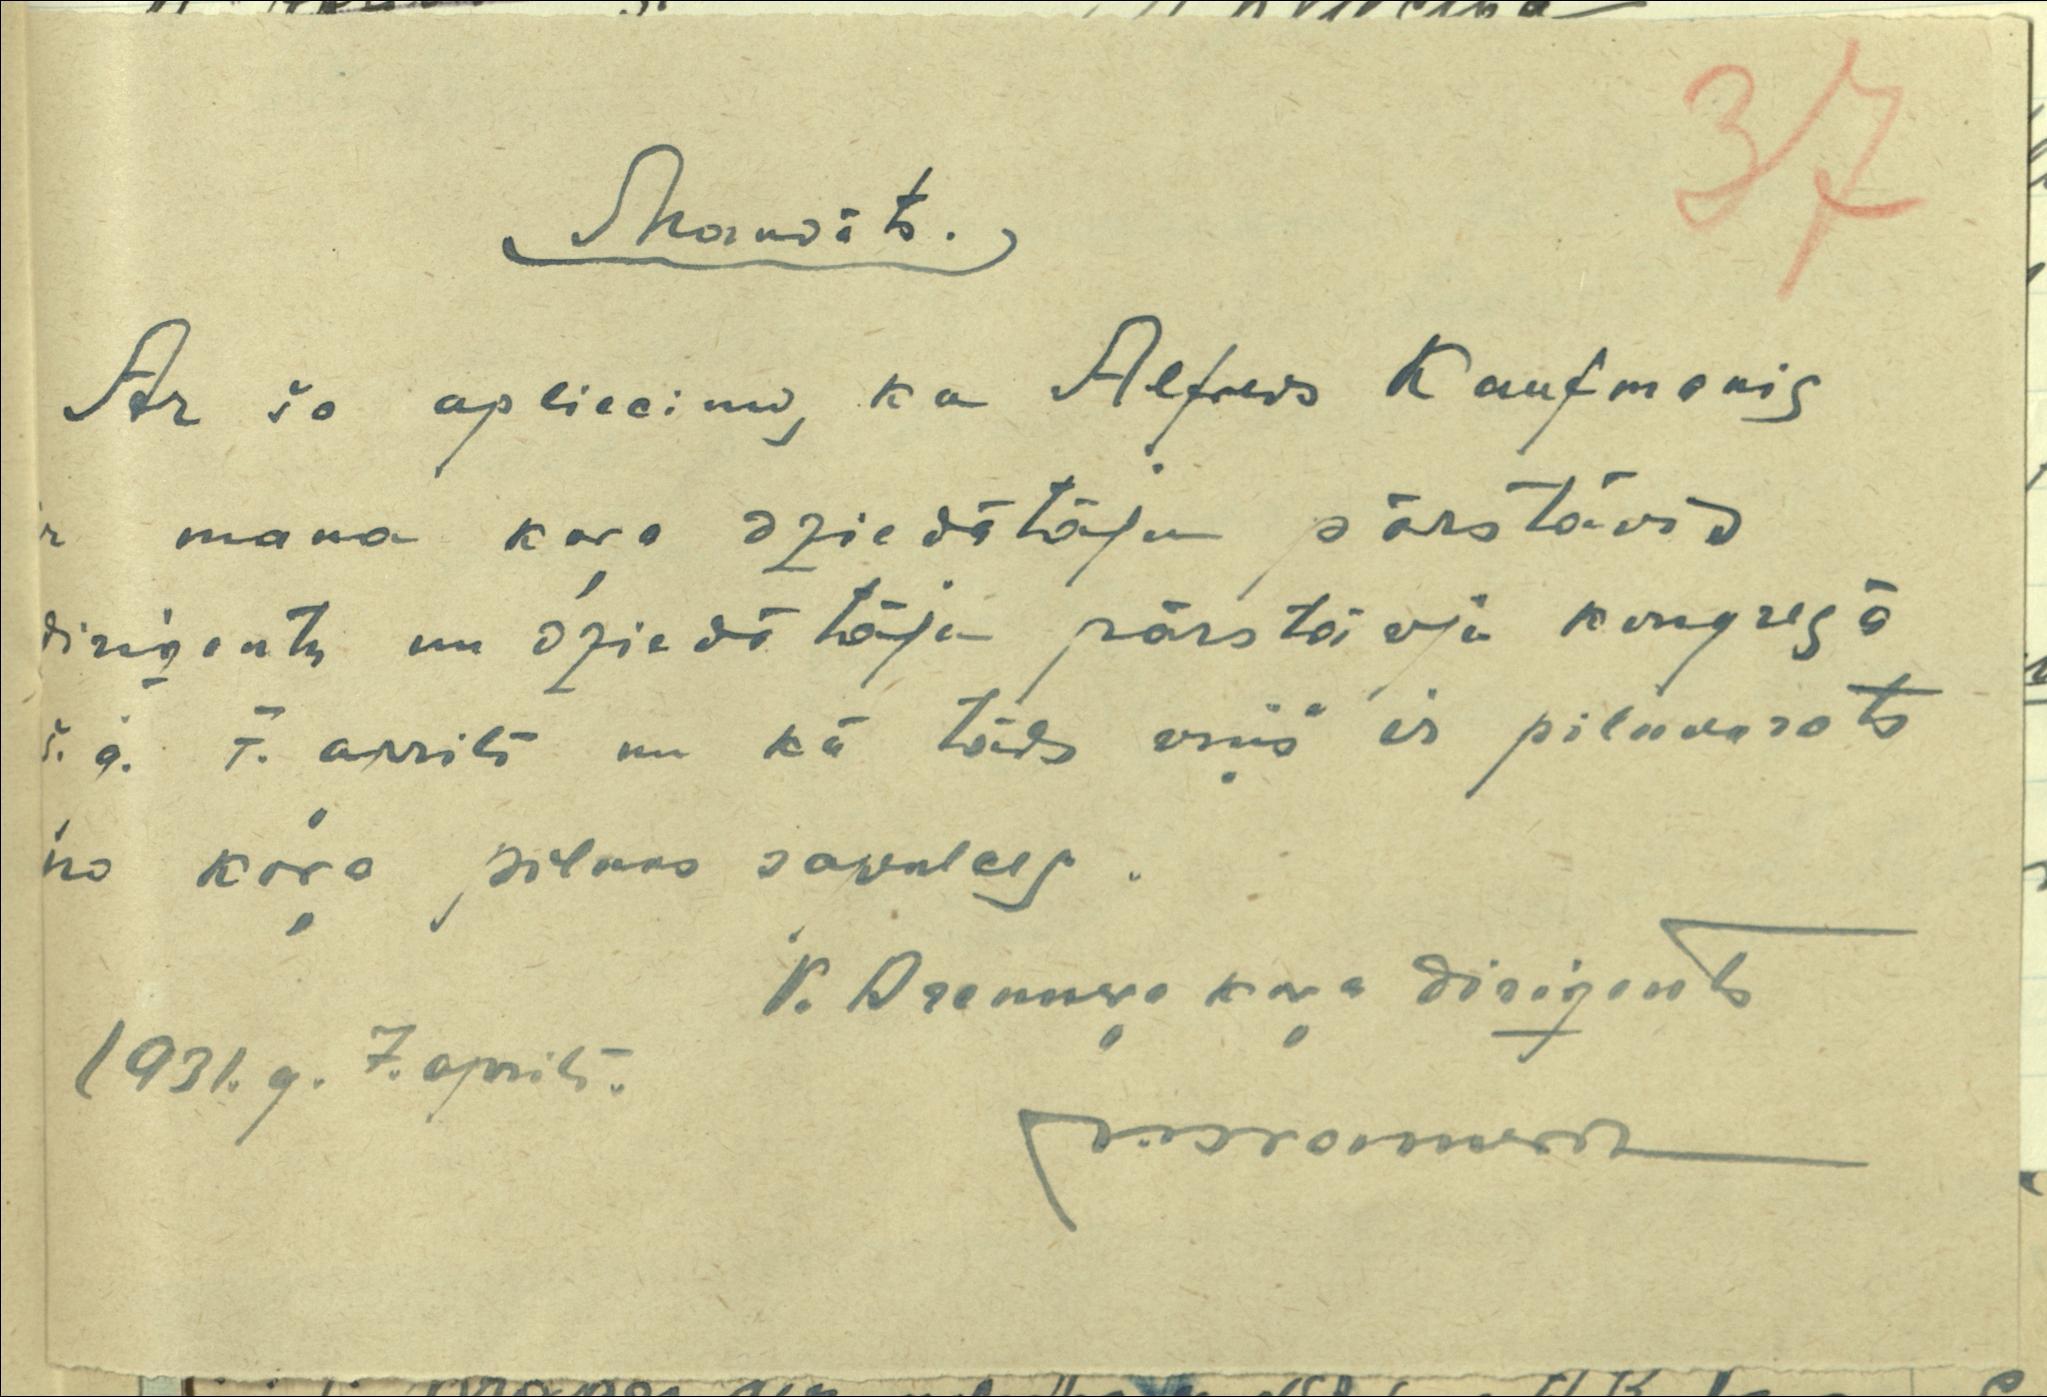 37
Mandāts.
Ar šo apliecinu, ka Alfreds Kaufmanis
ir mana koŗa dziedātāju pārstāvis
dirigentu un dziedātāju pārstāvju kongresā
š. g. 7. aprilī un kā tāds viņš ir pilnvarots
no koŗa pilnas sapulces.
V. Brennera koŗa dirigents
1931. g. 7. aprilī.